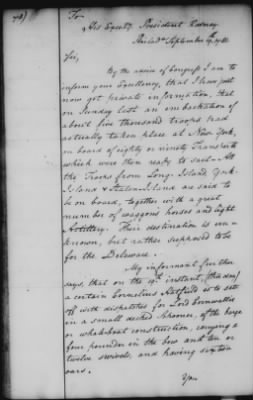 To
His Excelly. President Rodney
Philada. September 19. 1781
Sir,
By the advice of Congress I am to
inform your Excellency, that I have just
now got private information, that
on Sunday last an embarkation of
about five thousand troops had
actually taken place at New York,
on board of eighty or ninety Transports
which were then ready to sail — All
the Troops from Long Island, York
Island & Staten Island are said to
be on board, together with a great
number of waggons horses and light
Artillery. Their destination is un=
known, but rather supposed to be
for the Delaware.
My informant further
says, that on the 19th. instant,
a certain Cornelius Hatfield is to set
off with dispatches for Lord Cornwallis
in a small decked schooner, of the barge
or whale-boat construction, carrying a
four pounder in the bow and ten or
twelve swivels, and having sixteen
oars.
You